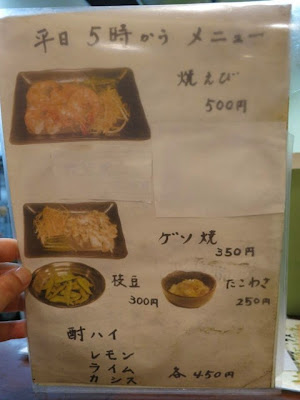 平日 5時から メニュー
焼えび
500円
ゲソ焼
350円
枝豆
300円
たこわさ
250円
酎ハイ
レモン
ライム
カシス
各450円